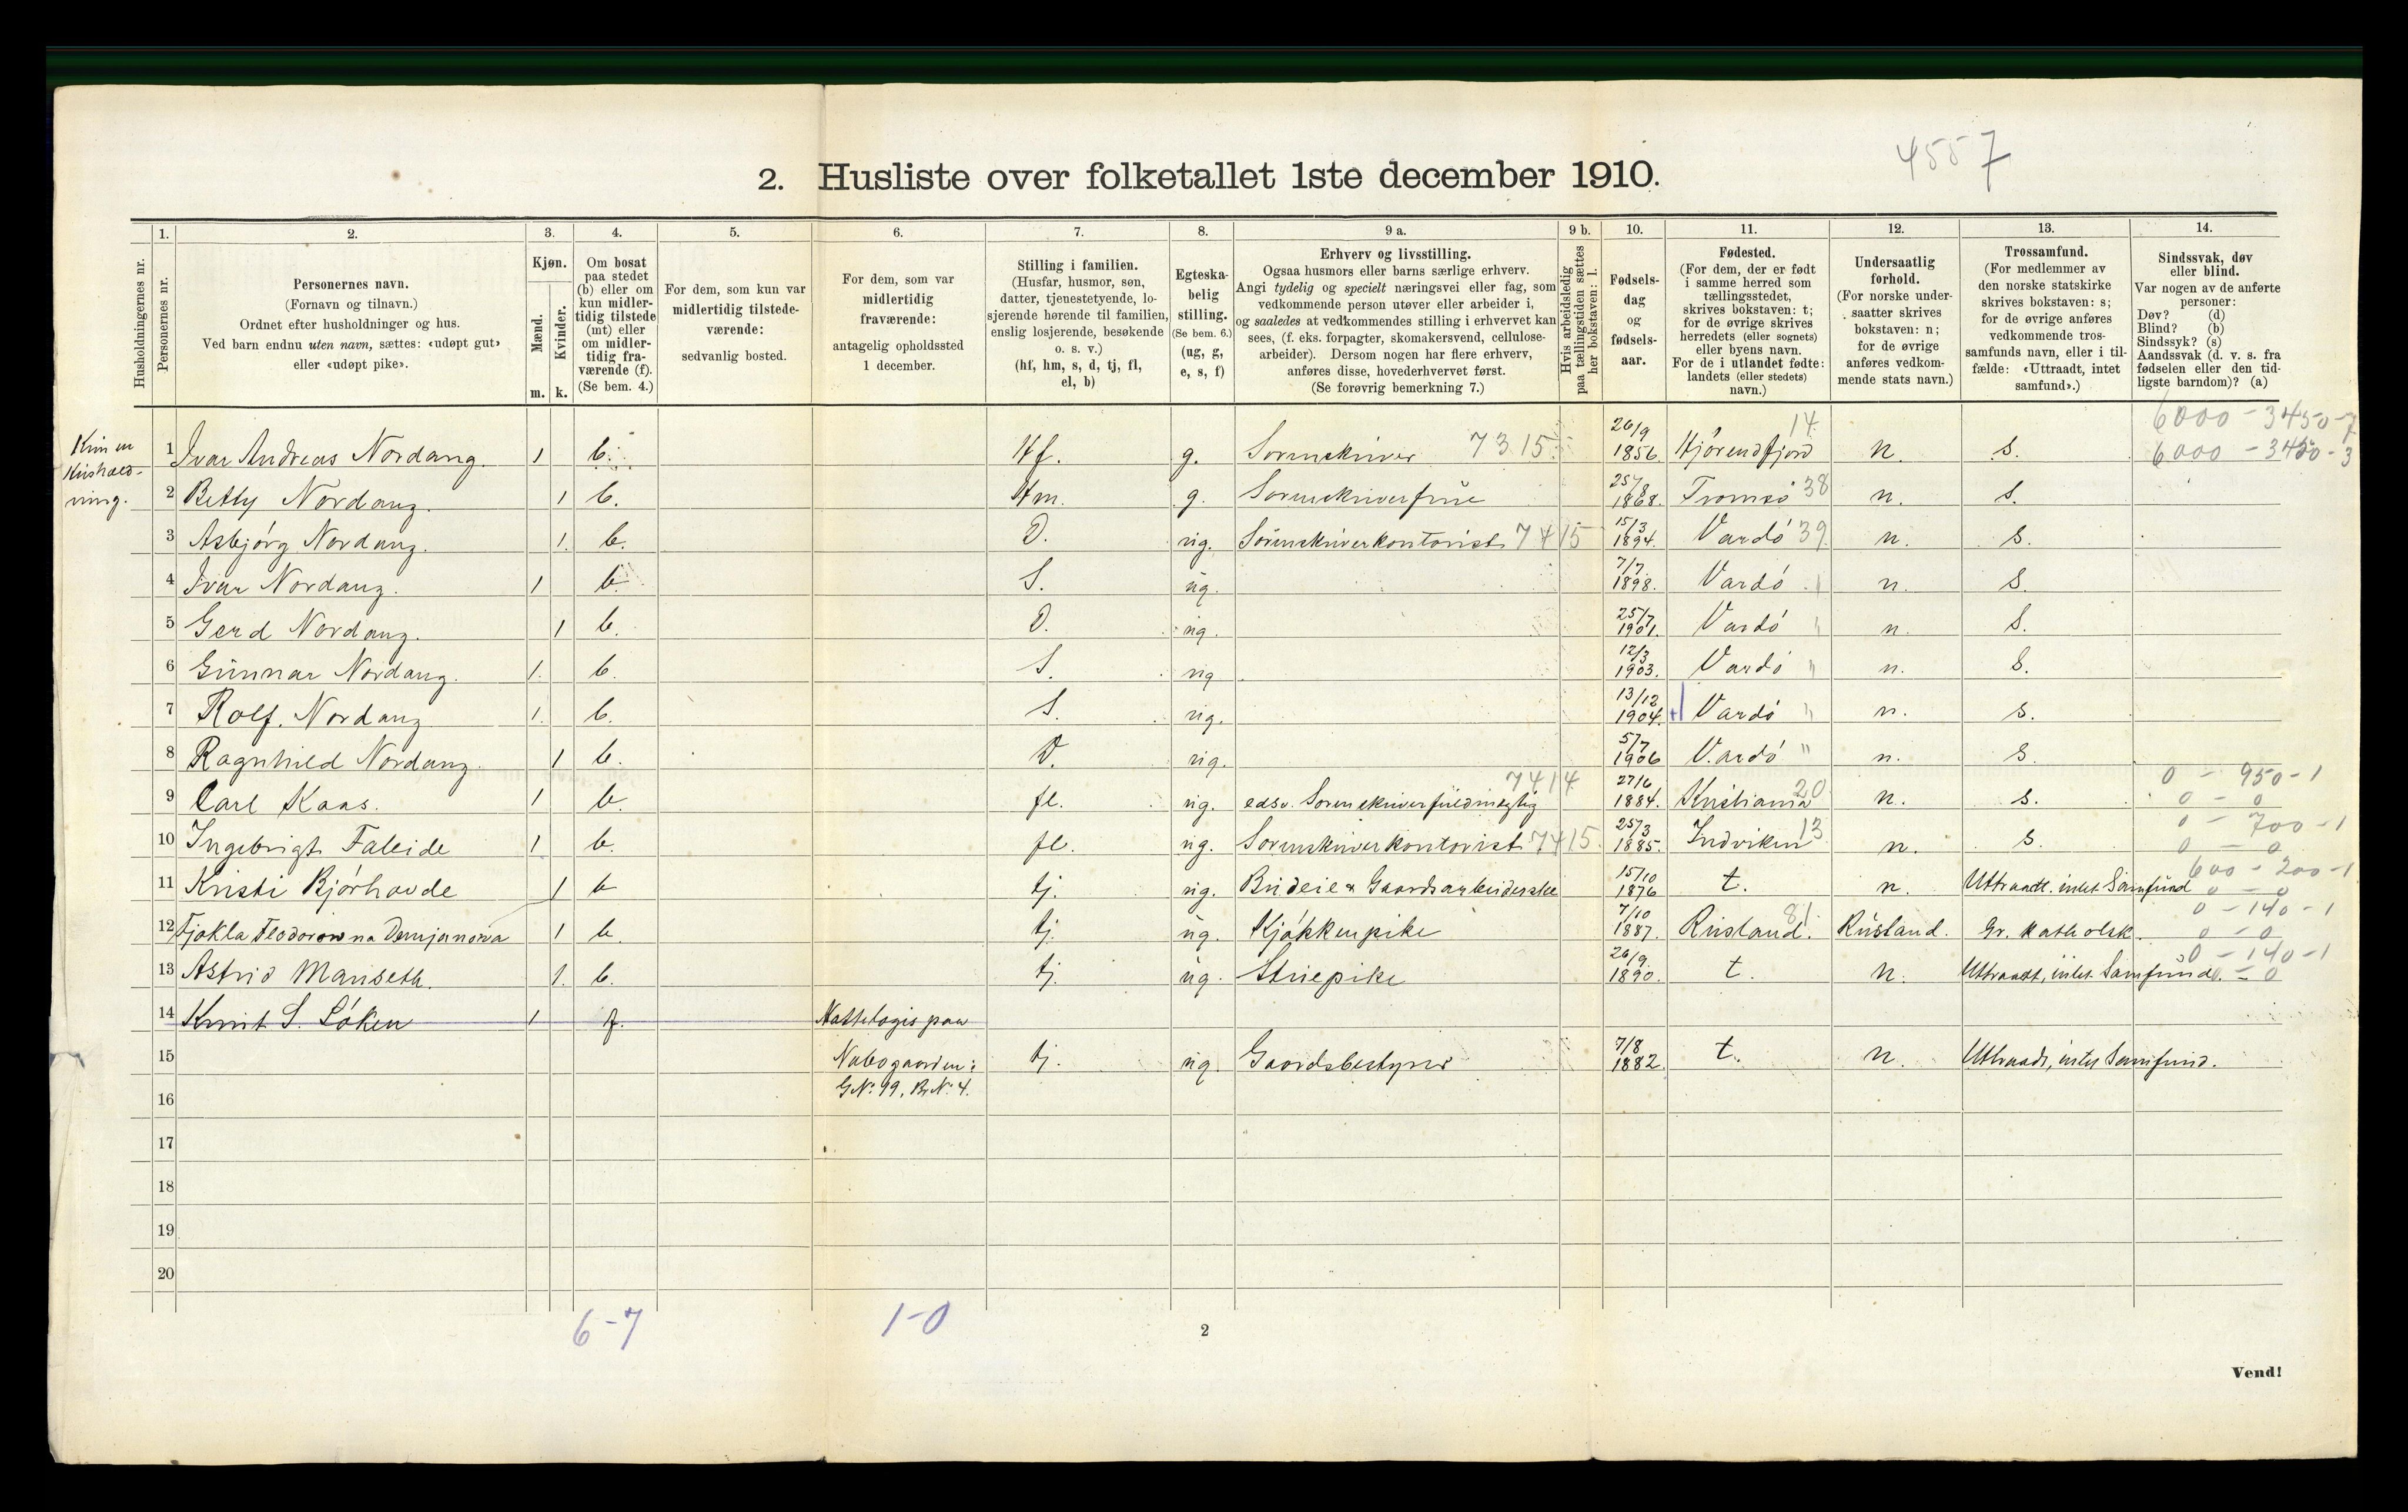 4557
2. Husliste over folketallet 1ste december 1910.
Husholdningernes nr.
1.
Personernes nr.
2.
Personernes navn.
(Fornavn og tilnavn.)
Ordnet efter husholdninger og hus.
Ved barn endnu uten navn, sættes: «udøpt gut»
eller «udøpt pike».
3.
Kjøn.
Mænd.
Kvinder.
m. k.
4.
Om bosat
paa stedet
(b) eller om
kun midler-
tidig tilstede
(mt) eller
om midler-
tidig fra-
værende (f).
(Se bem. 4.)
5.
For dem, som kun var
midlertidig tilstede-
værende:
sedvanlig bosted.
6.
For dem, som var
midlertidig
fraværende:
antagelig opholdssted
1 december.
7.
Stilling i familien.
(Husfar, husmor, søn,
datter, tjenestetyende, lo-
sjerende hørende til familien,
enslig losjerende, besøkende
o. s. v.)
(hf, hm, s, d, tj, fl,
el, b)
8.
Egteska-
belig
stilling.
(Se bem. 6.)
(ug, g,
e, s, f)
9 a.
Erhverv og livsstilling.
Ogsaa husmors eller barns særlige erhverv.
Angi tydelig og specielt næringsvei eller fag, som
vedkommende person utøver eller arbeider i,
og saaledes at vedkommendes stilling i erhvervet kan
sees, (f. eks. forpagter, skomakersvend, cellulose-
arbeider). Dersom nogen har flere erhverv,
anføres disse, hovederhvervet først.
(Se forøvrig bemerkning 7.)
9 b.
Hvis arbeidsledig
paa tællingstiden sættes
her bokstaven: l.
10.
Fødsels-
dag
og
fødsels-
aar.
11.
Fødested.
(For dem, der er født
i samme herred som
tællingsstedet,
skrives bokstaven: t;
for de øvrige skrives
herredets (eller sognets)
eller byens navn.
For de i utlandet fødte:
landets (eller stedets)
navn.)
12.
Undersaatlig
forhold.
(For norske under-
saatter skrives
bokstaven: n;
for de øvrige
anføres vedkom-
mende stats navn.)
13.
Trossamfund.
(For medlemmer av
den norske statskirke
skrives bokstaven: s;
for de øvrige anføres
vedkommende tros-
samfunds navn, eller i til-
fælde: «Uttraadt, intet
samfund».)
14.
Sindssvak, døv
eller blind.
Var nogen av de anførte
personer:
Døv? (d)
Blind? (b)
Sindssyk? (s)
Aandssvak (d. v. s. fra
fødselen eller den tid-
ligste barndom)? (a)
Kun en
Hushold-
ning.
6000 - 3450 - 7
1 Ivar Andreas Nordang. 1 b. Hf. g. Sorenskriver 7315 26/9 1856. Hjörendfjord 14 n. s. 6000 - 3450 - 3
2 Betty Nordang. 1 b. Hm. g. Sorenskriverfrue 25/8 1868. Tromsö 38 n. s.
3 Asbjörg Nordang. 1. b. D. ug. Sörenskriverkontorist 7415 15/3 1894. Vardö 39 n. s.
4 Ivar Nordang. 1 b. S. ug. 7/7 1898. Vardö " n. s.
5 Gerd Nordang. 1 b. D. ug. 25/7 1901. Vardö " n. s.
6 Gunnar Nordang. 1. b. S. ug 12/3 1903. Vardö " n. s.
7 Rolf. Nordang 1. b. S. ug. 13/12 1904. Vardö " n. s.
8 Ragnhild Nordang. 1 b. D. ug. 5/7 1906 Vardö " n. s.
0 - 950 - 1
9 Carl Kaas. 1 b. fl. ug. edsv. Sorenskriverfuldmegtig 7414 27/6 1884. Kristiania 20 n. s. 0 - 0
0 - 700 - 1
10 Ingebrigt Faleide 1 b. fl. ug. Sorenskriverkontorist 7415 25/3 1885. Indviken 13 n. s. 0 - 0
600 - 200 - 1
11 Kristi Bjórhovde 1 b tj. ug. Budeie & Gaardsarbeiderske 15/10 1876 t. n. Uttraadt. intet Samfund 0 - 0
0 - 140 - 1
12 Fjokla Feodorowna Demjanowa 1 b. tj. ug. Kjökkenpike 7/10 1887. Rusland. 81 Rusland. Gr. Katholsk. 0 - 0
0 - 140 - 1
13 Astrid Mariseth. 1. b. tj. ug. Stuepike 26/9 1890. t. n. Uttraadt, intet Samfund. 0 - 0
14 Knut S. Löken 1 f. Nattelogis paa
15 Nabogaarden: tj. ug. Gaardsbestyrer 7/8 1882. t. n. Uttraadt, intet Samfund.
16 G.No. 99, B.No. 4.
17
18
19
20
6-7 1-0
2
Vend!